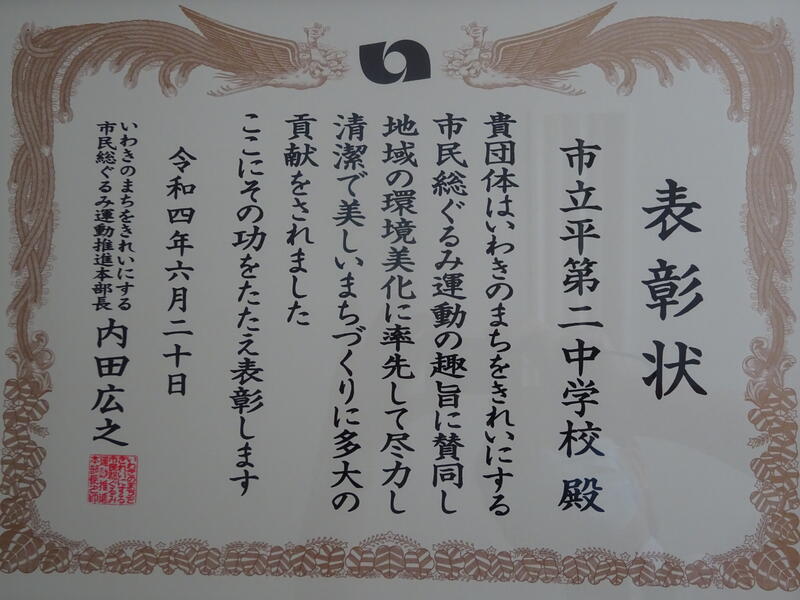 表彰状
市立平第二中学校 殿
貴団体はいわきのまちをきれいにする
市民総ぐるみ運動の趣旨に賛同し
地域の環境美化に率先して尽力し
清潔で美しいまちづくりに多大の
貢献をされました
ここにその功をたたえ表彰します
令和四年六月二十日
いわきのまちをきれいにする
市民総ぐるみ運動推進本部長 内田広之